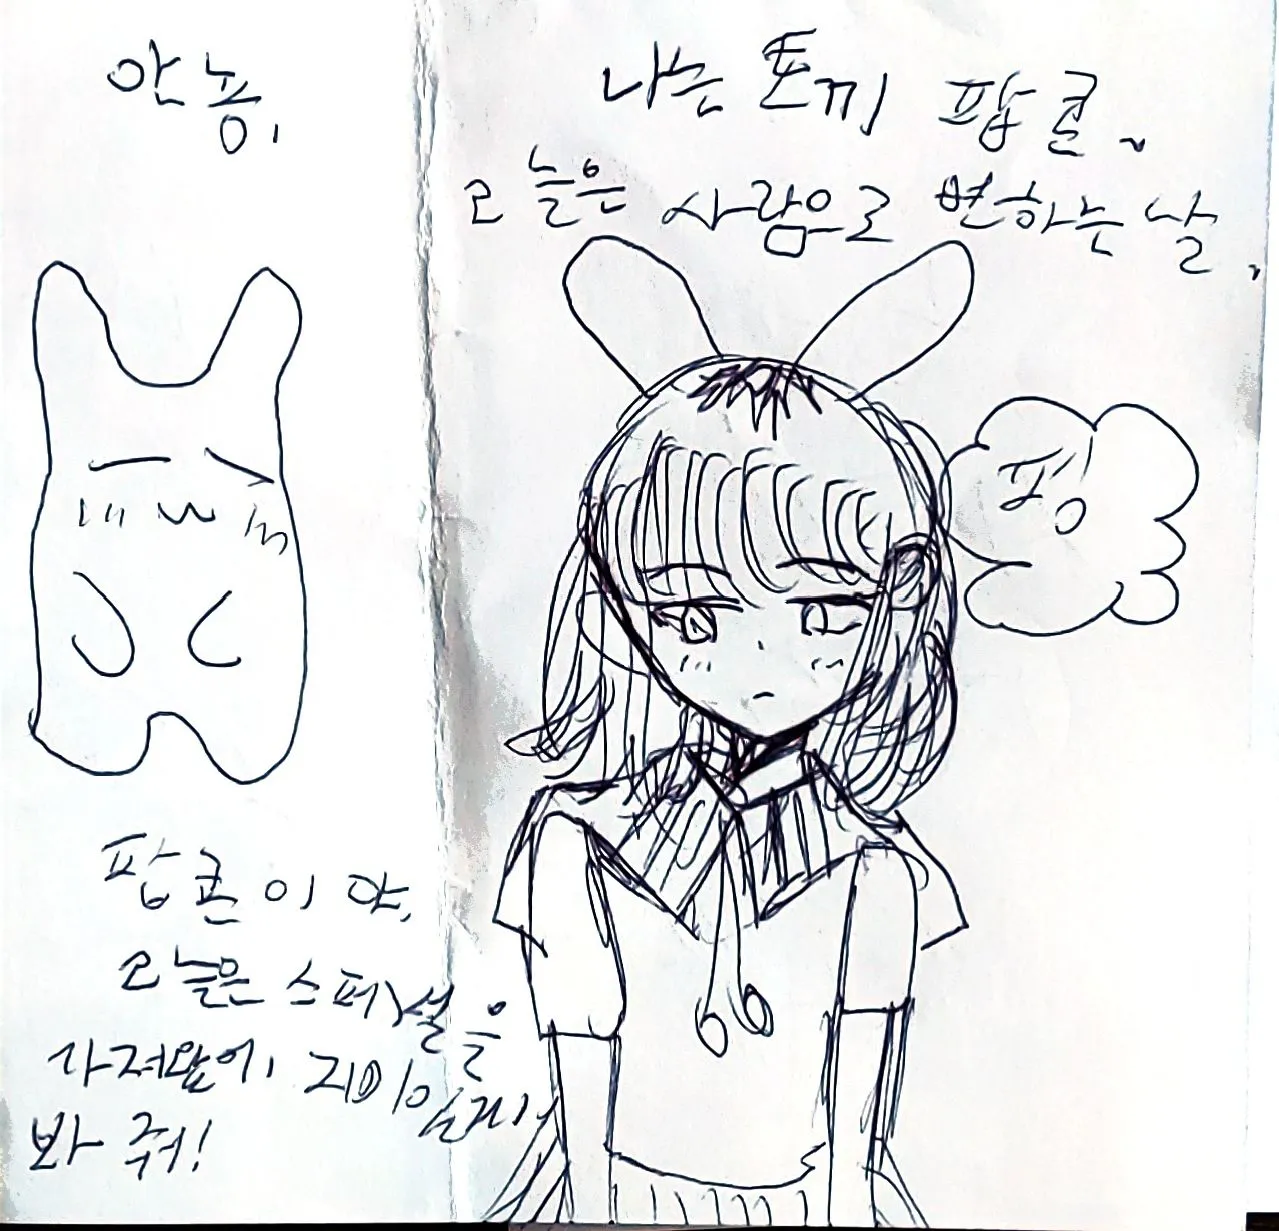 안뇽,
팝콘이야,
오늘은 스페셜을
가져왔어, 재미있게
봐줘!
나는 토끼 팝콘,
오늘은 사람으로 변하는 날,
펑